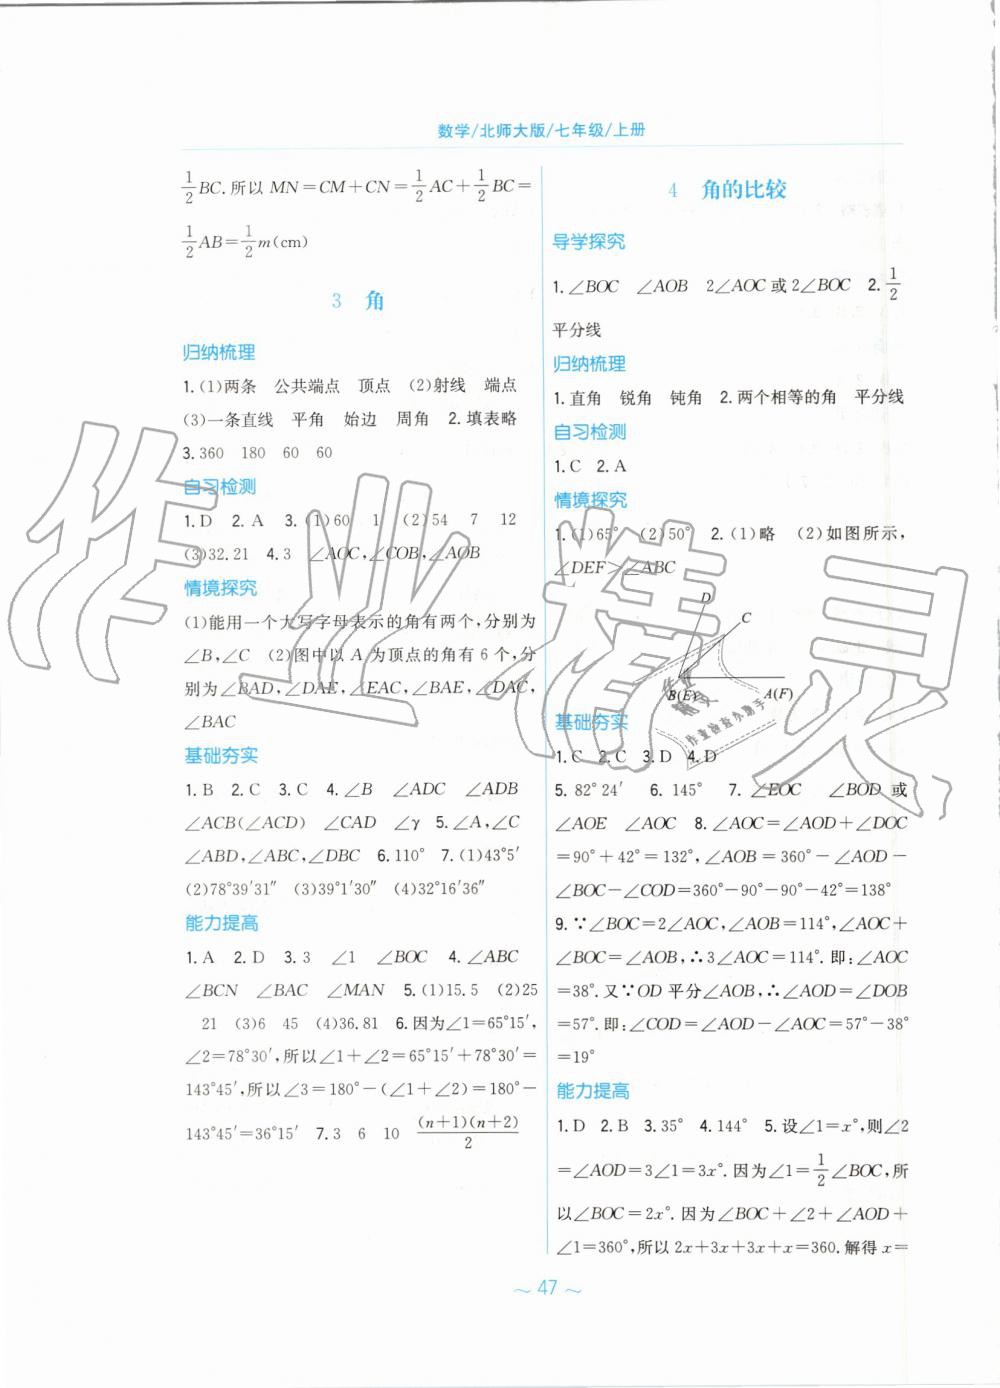 数学/北师大版/七年级/上册
1/2 BC.所以 MN=CM+CN=1/2 AC+1/2 BC=
1/2 AB=1/2 m(cm)
3 角
归纳梳理
1.(1)两条 公共端点 顶点 (2)射线 端点
(3)一条直线 平角 始边 周角 2.填表略
3.360 180 60 60
自习检测
1.D 2.A 3.(1)60 1 (2)54 7 12
(3)32.21 4.3 ∠AOC,∠COB,∠AOB
情境探究
(1)能用一个大写字母表示的角有两个,分别为
∠B,∠C (2)图中以 A 为顶点的角有 6 个,分
别为∠BAD,∠DAE,∠EAC,∠BAE,∠DAC,
∠BAC
基础夯实
1.B 2.C 3.C 4.∠B ∠ADC ∠ADB
∠ACB(∠ACD) ∠CAD ∠γ 5.∠A,∠C
∠ABD,∠ABC,∠DBC 6.110° 7.(1)43°5′
(2)78°39′31″ (3)39°1′30″ (4)32°16′36″
能力提高
1.A 2.D 3.3 ∠1 ∠BOC 4.∠ABC
∠BCN ∠BAC ∠MAN 5.(1)15.5 (2)25
21 (3)6 45 (4)36.81 6.因为∠1=65°15′,
∠2=78°30′,所以∠1+∠2=65°15′+78°30′=
143°45′,所以∠3=180°-(∠1+∠2)=180°-
143°45′=36°15′ 7.3 6 10 (n+1)(n+2)/2
4 角的比较
导学探究
1.∠BOC ∠AOB 2∠AOC或2∠BOC 2.1/2
平分线
归纳梳理
1.直角 锐角 钝角 2.两个相等的角 平分线
自习检测
1.C 2.A
情境探究
1.(1)65° (2)50° 2.(1)略 (2)如图所示,
∠DEF>∠ABC
D
C
B(E) A(F)
基础夯实
1.C 2.C 3.D 4.D
5.82°24′ 6.145° 7.∠EOC ∠BOD 或
∠AOE ∠AOC 8.∠AOC=∠AOD+∠DOC
=90°+42°=132°,∠AOB=360°-∠AOD-
∠BOC-∠COD=360°-90°-90°-42°=138°
9.∵∠BOC=2∠AOC,∠AOB=114°,∠AOC+
∠BOC=∠AOB,∴3∠AOC=114°.即:∠AOC
=38°.又∵OD 平分∠AOB,∴∠AOD=∠DOB
=57°.即:∠COD=∠AOD-∠AOC=57°-38°
=19°
能力提高
1.D 2.B 3.35° 4.144° 5.设∠1=x°,则∠2
=∠AOD=3∠1=3x°.因为∠1=1/2∠BOC,所
以∠BOC=2x°.因为∠BOC+∠2+∠AOD+
∠1=360°,所以 2x+3x+3x+x=360.解得 x=
~ 47 ~
作业精灵
作业精灵
作业检查小助手